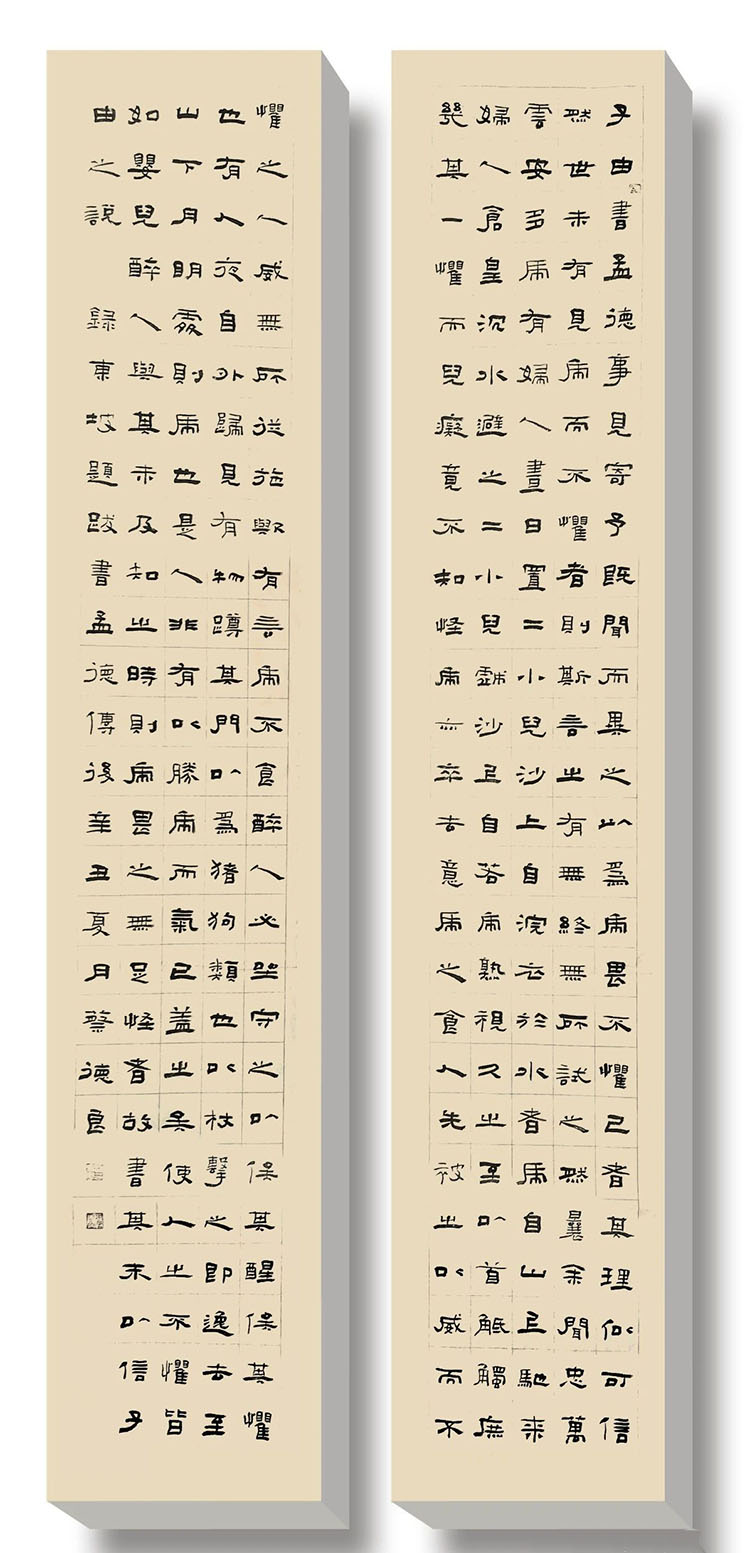 子由書孟德事見寄予既聞而異之以為虎畏不懼己者其理似可信
然世未有見虎而不懼者則斯言之有無終無所試之然曩余聞忠萬
雲安多虎有婦人晝日置二小兒沙上自浣衣於水者虎自山上馳来
婦人倉皇沉水避之二小兒戲沙上自若虎熟視久之至以首觝觸庶
幾其一懼而兒癡竟不知怪虎亦卒去意虎之食人先被之以威而不
懼之人威無所從施歟有言虎不食醉人必坐守之以俟其醒俟其懼
也有人夜自外歸見有物蹲其門以為猪狗類也以杖擊之即逸去至
山下月明處則虎也是人非有以勝虎而氣已盖之矣使人之不懼皆
如嬰兒醉人與其未及知之時則虎畏之無足怪者故書其末以信子
由之說 錄東坡題跋書孟德傳後辛丑夏月蔡德良